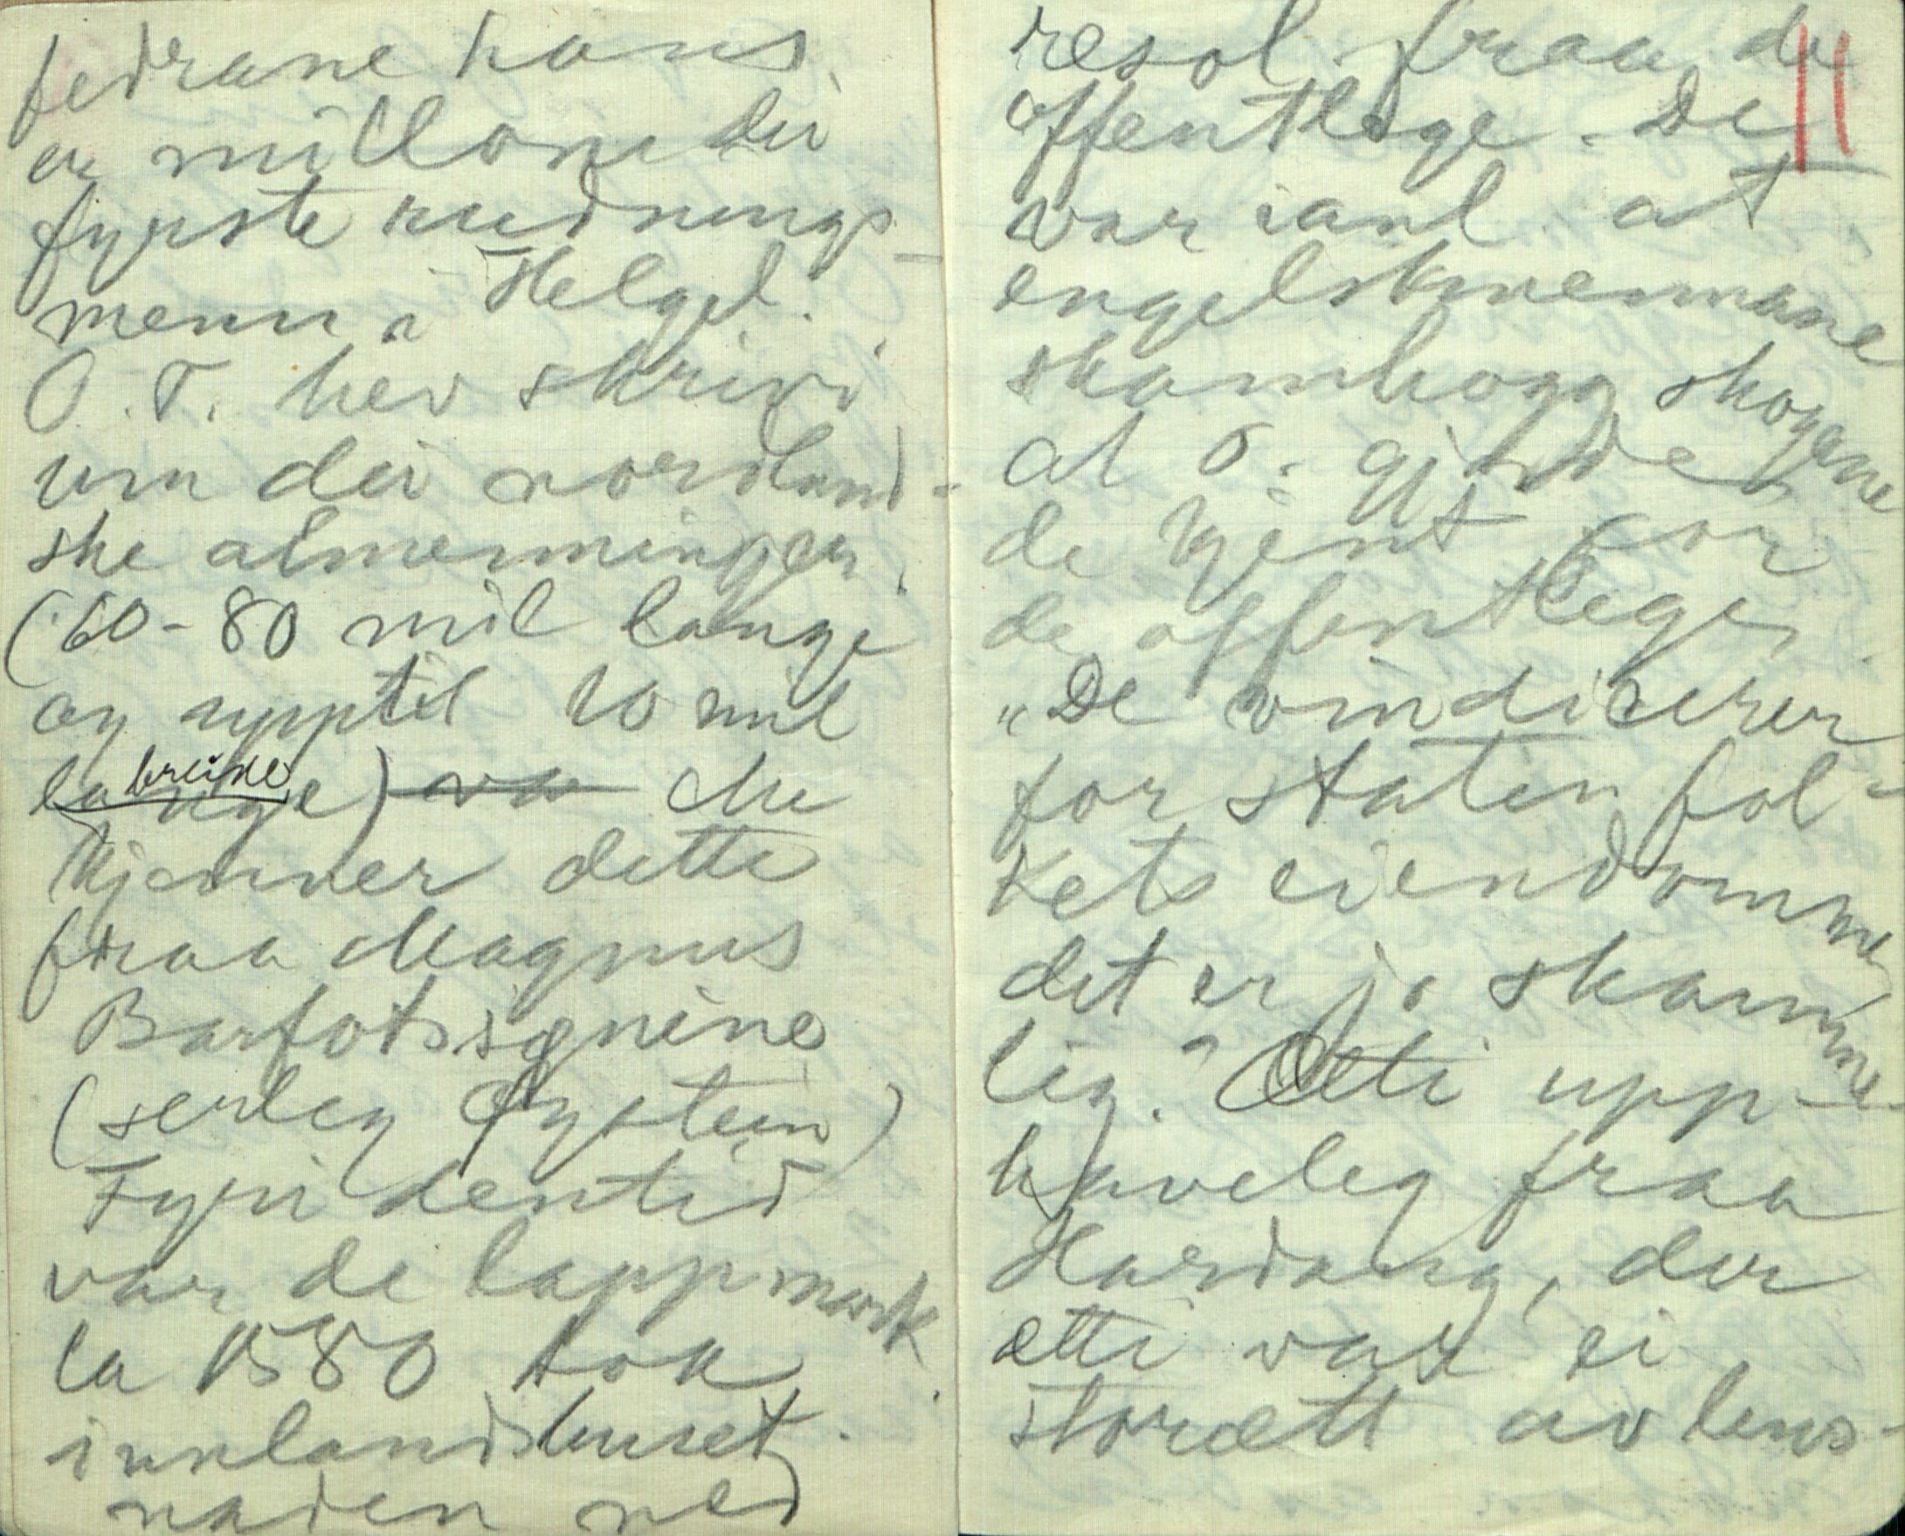 fedrane hans
er millom dei
fyrste rudnings-
menn i Helgel.
O. T. hev skrivi
um dei nordland-
ske almenningar
(60-80 mil lange
og upptil 10 mil
lange breide) va Me
kjenner dette
fraa Magnus
Barfotssignine
(serleg Øystein)
Fyri dentid
var de lappmark
ca 1580 tok
innlandsbuset.
naden ved
resol. fraa de
offentlege. De 11
var ianl. at
engelskmennane
skamhogg skogane
at O. gjorde
de kjent for
de offentlege.
"De vindicerer
for staten fol-
kets eiendomme
det er jo skamme-
lig." Ætti upp-
haveleg fraa
Hardang, der
ætti var ei
storætt av lens-